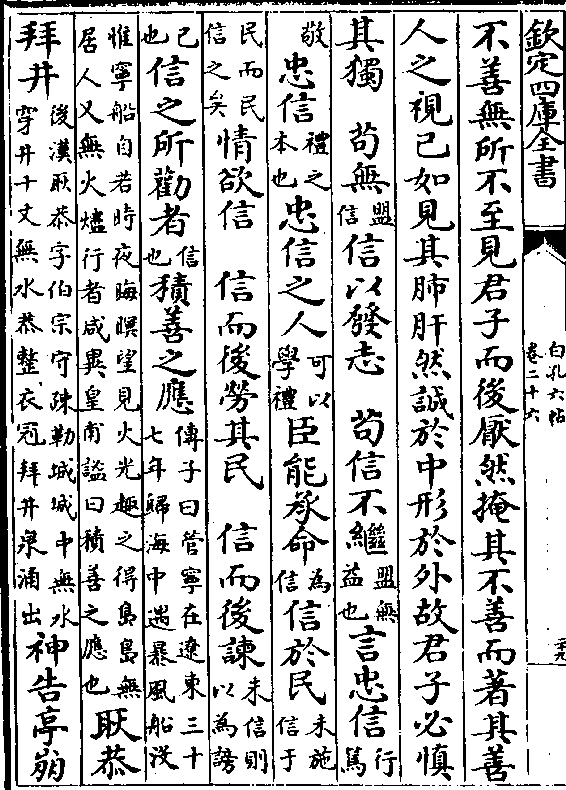 欽定四庫全書
白孔六帖
卷二十六
不善無所不至見君子而後厭然掩其不善而著其善
人之視己如見其肺肝然誠於中形於外故君子必慎
其獨　苟無盟信信以發志　苟信不繼盟無益也言忠信行篤
敬忠信禮之本也忠信之人可以學禮臣能承命為信信於民未施信于
民而民信之矣情欲信　信而後勞其民　信而後諫未信則以為謗
已也信之所勸者信也積善之應傅子曰管寧在遼東三十七年歸海中遇暴風船没
惟寧船自若時夜晦暝望見火光趣之得島島無居人又無火燼行者咸異皇甫謐曰積善之應也耿恭
拜井後漢耿恭字伯宗守疎勒城城中無水穿井十丈無水恭整衣冠拜井泉涌出神告亭崩